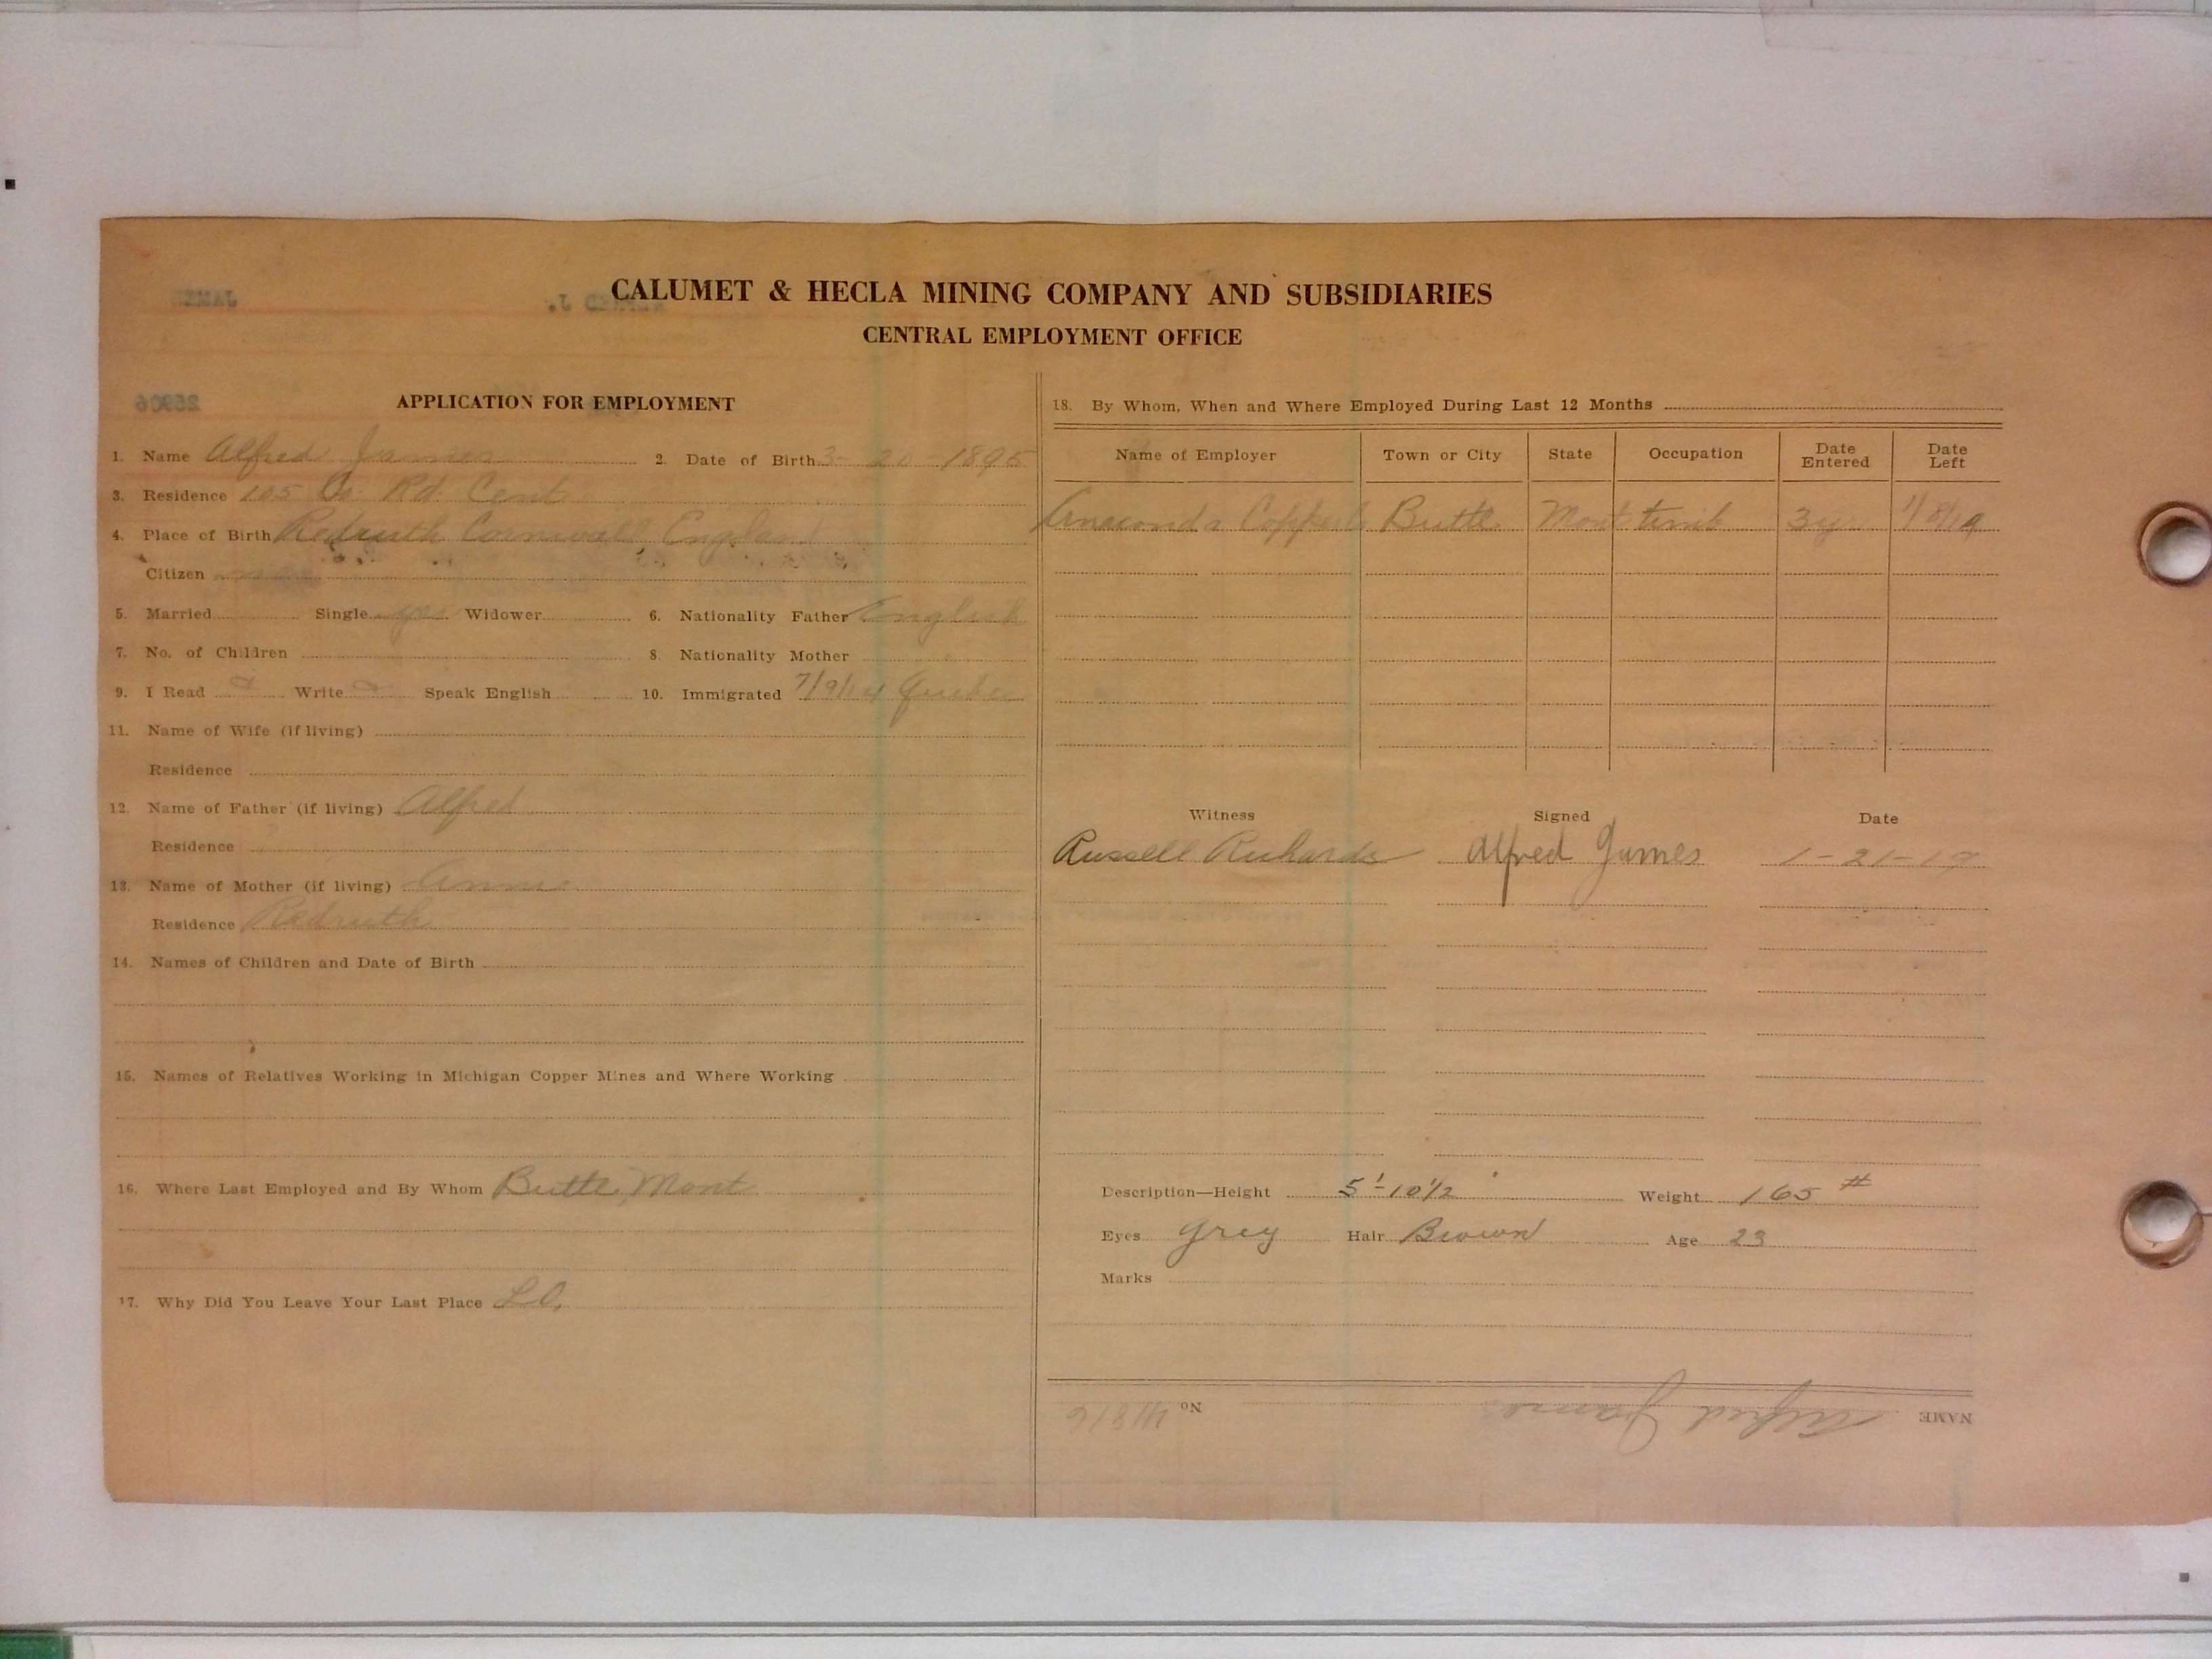 CALUMET & HECLA MINING COMPANY AND SUBSIDIARIES
CENTRAL EMPLOYMENT OFFICE
APPLICATION FOR EMPLOYMENT
1. Name Alfred James 2. Date of Birth 3- -1895
3. Residence 105 Co. Rd. Cent.
4. Place of Birth Redruth Cornwall, England
Citizen
5. Married Single yes Widower 6. Nationality Father English
7. No. of Children 8. Nationality Mother
9. I Read Write Speak English 10. Immigrated 7/9/14 Quebec
11. Name of Wife (if living)
Residence
12. Name of Father (if living) Alfred
Residence ?
13. Name of Mother (if living) Annie
Residence Redruth
14. Names of Children and Date of Birth
15. Names of Relatives Working in Michigan Copper Mines and Where Working
16. Where Last Employed and By Whom Butte, Mont
17. Why Did You Leave Your Last Place L.O.
18. By Whom, When and Where Employed During Last 12 Months
Name of Employer Town or City State Occupation Date Entered Date Left
Anaconda Copper Butte Mont timb 3 yr 1/8/19
Witness Signed Date
Russell Richards Alfred James 1-21-19
Description—Height 5'-10 1/2 Weight 165 #
Eyes Grey Hair Brown Age 23
Marks
NAME Alfred James No.
JAMES
ALFRED J.